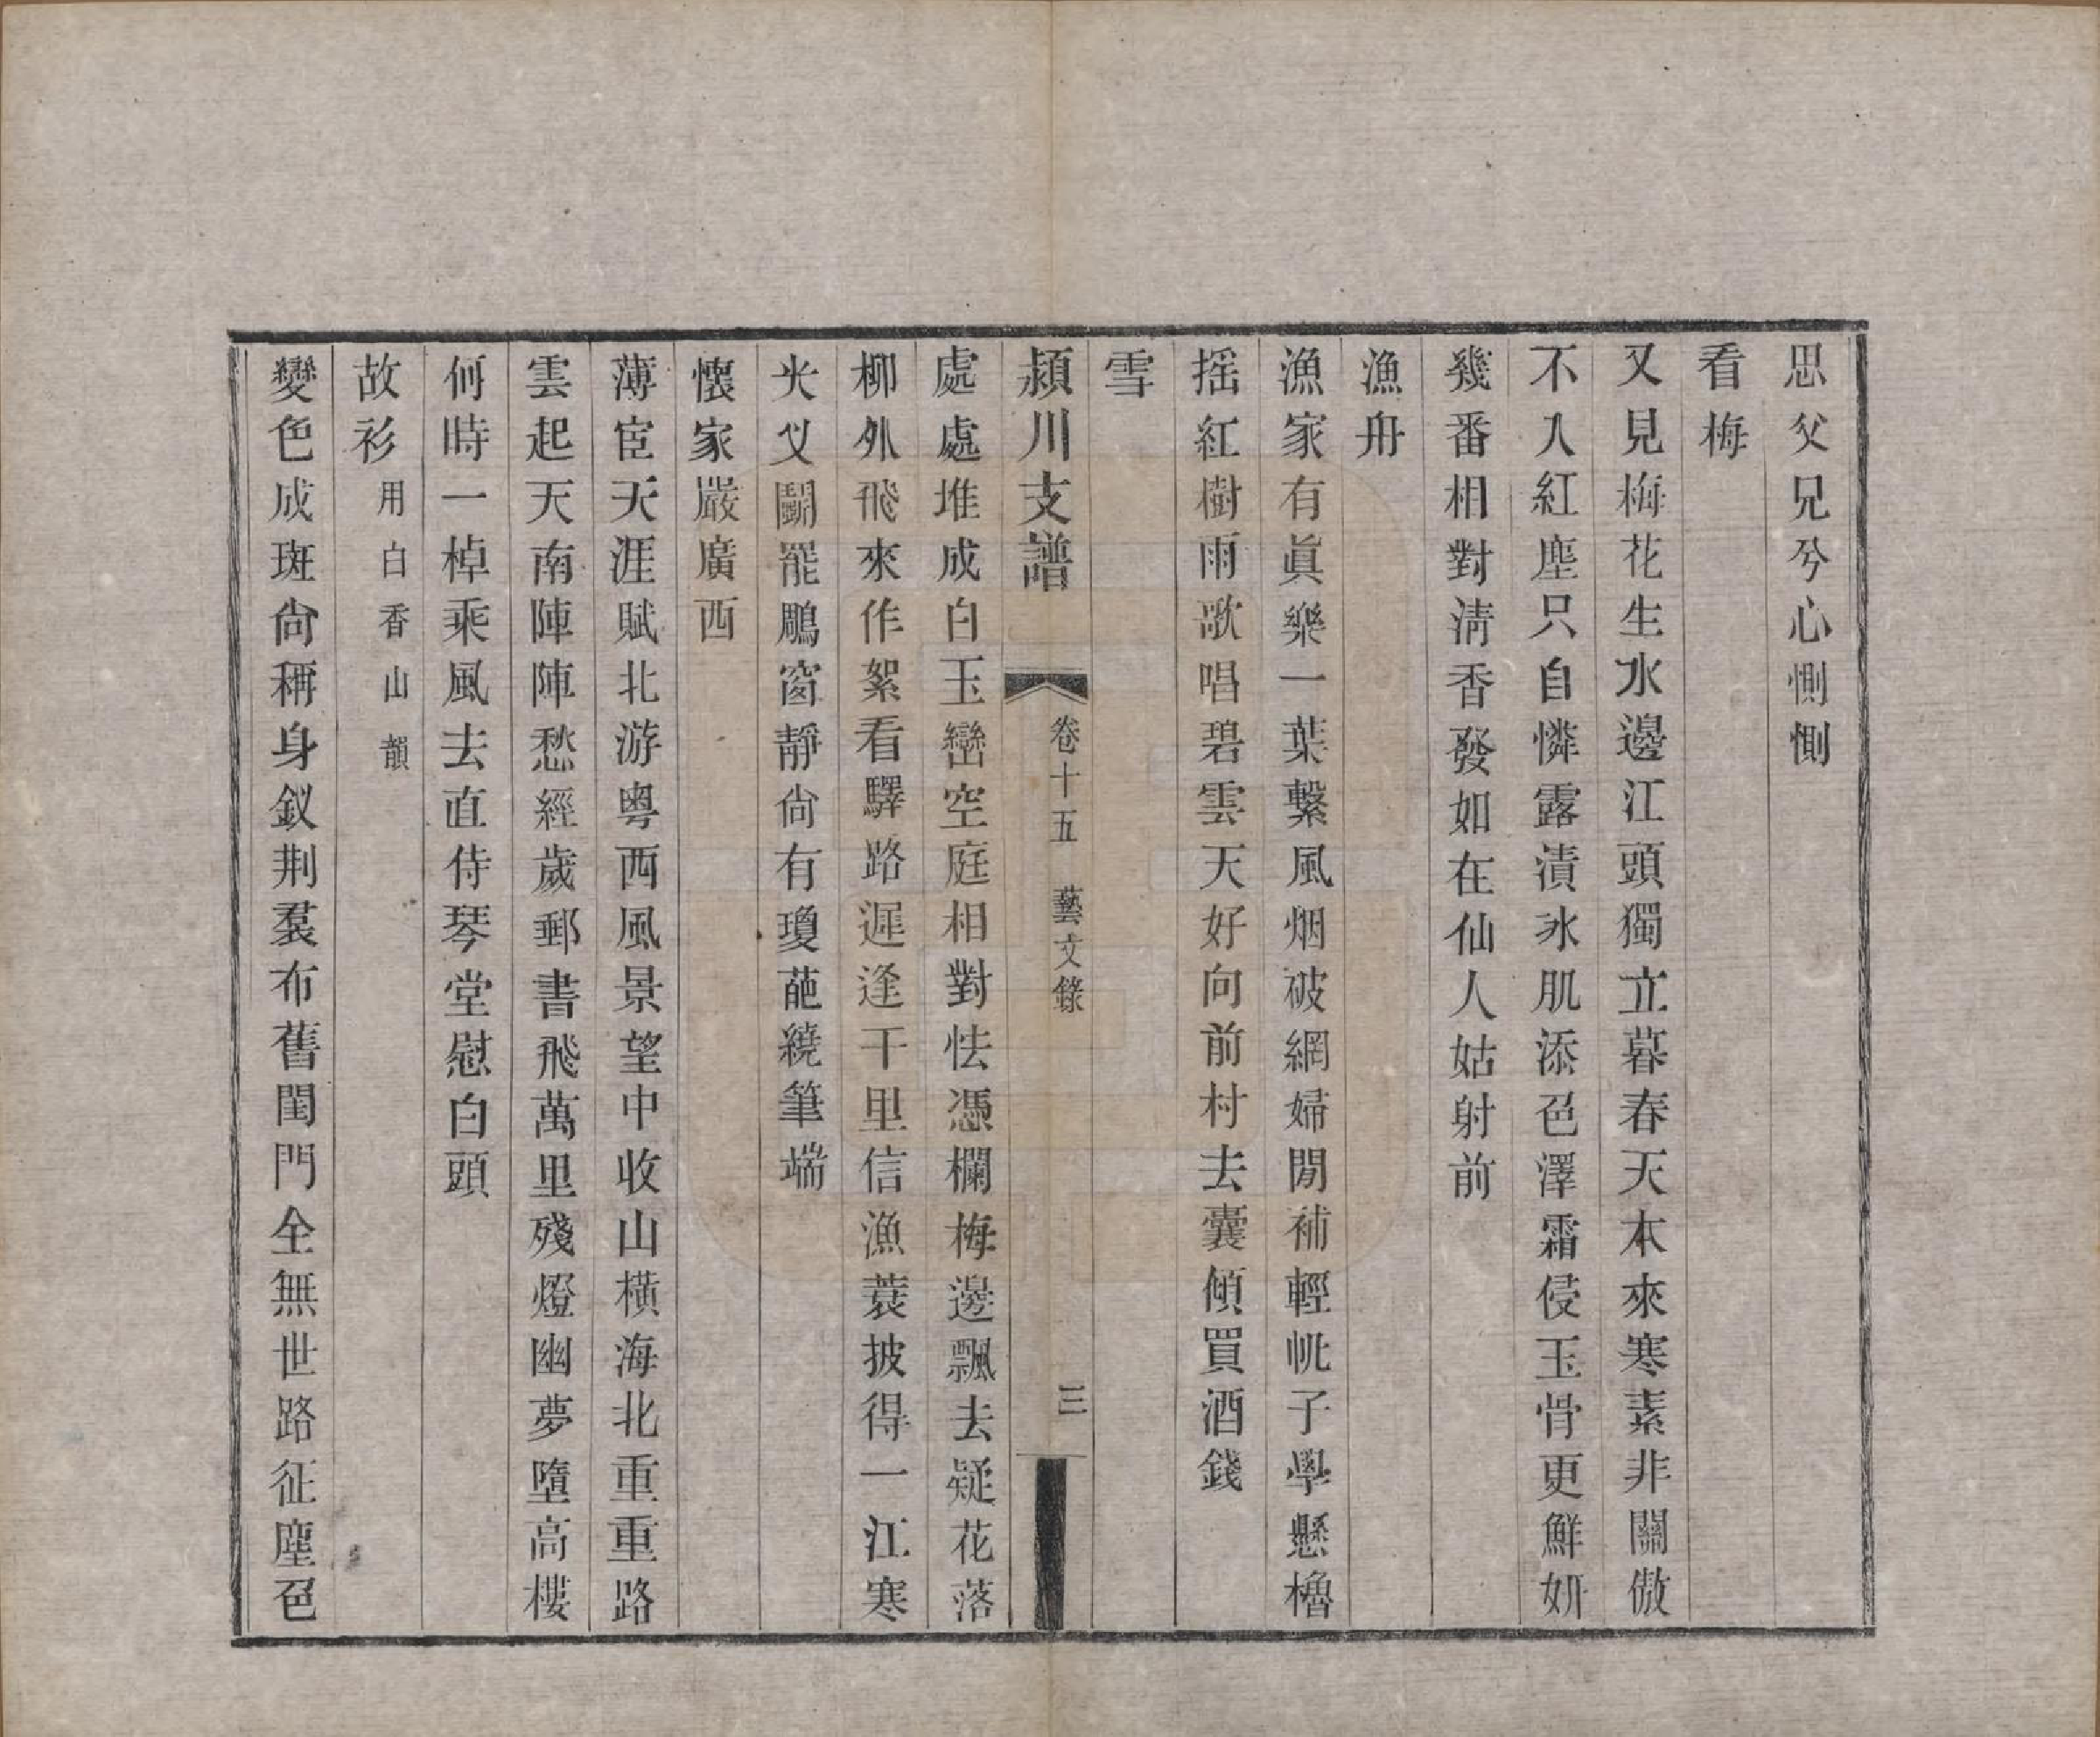 思父兄兮心惻惻
看梅
又見梅花生水邊江頭獨立暮春天本來寒素非關傲
不入紅塵只自憐露漬氷肌添色澤霜侵玉骨更鮮姸
幾番相對淸香發如在仙人姑射前
漁舟
漁家有眞樂一葉繫風烟破網婦閒補輕帆子學懸櫓
搖紅樹雨歌唱碧雲天好向前村去囊傾買酒錢
雪
潁川支譜 卷十五 藝文錄 三
處處堆成白玉巒空庭相對怯憑欄梅邊飄去疑花落
柳外飛來作絮看驛路遲逢千里信漁蓑披得一江寒
尖叉鬭罷鵰窗靜尙有瓊葩繞筆端
懷家嚴廣西
薄宦天涯賦北游粤西風景望中收山橫海北重重路
雲起天南陣陣愁經歲郵書飛萬里殘燈幽夢墮高樓
何時一棹乘風去直侍琴堂慰白頭
故衫 用白香山韻
變色成斑尙稱身釵荆裠布舊閨門全無世路征塵色